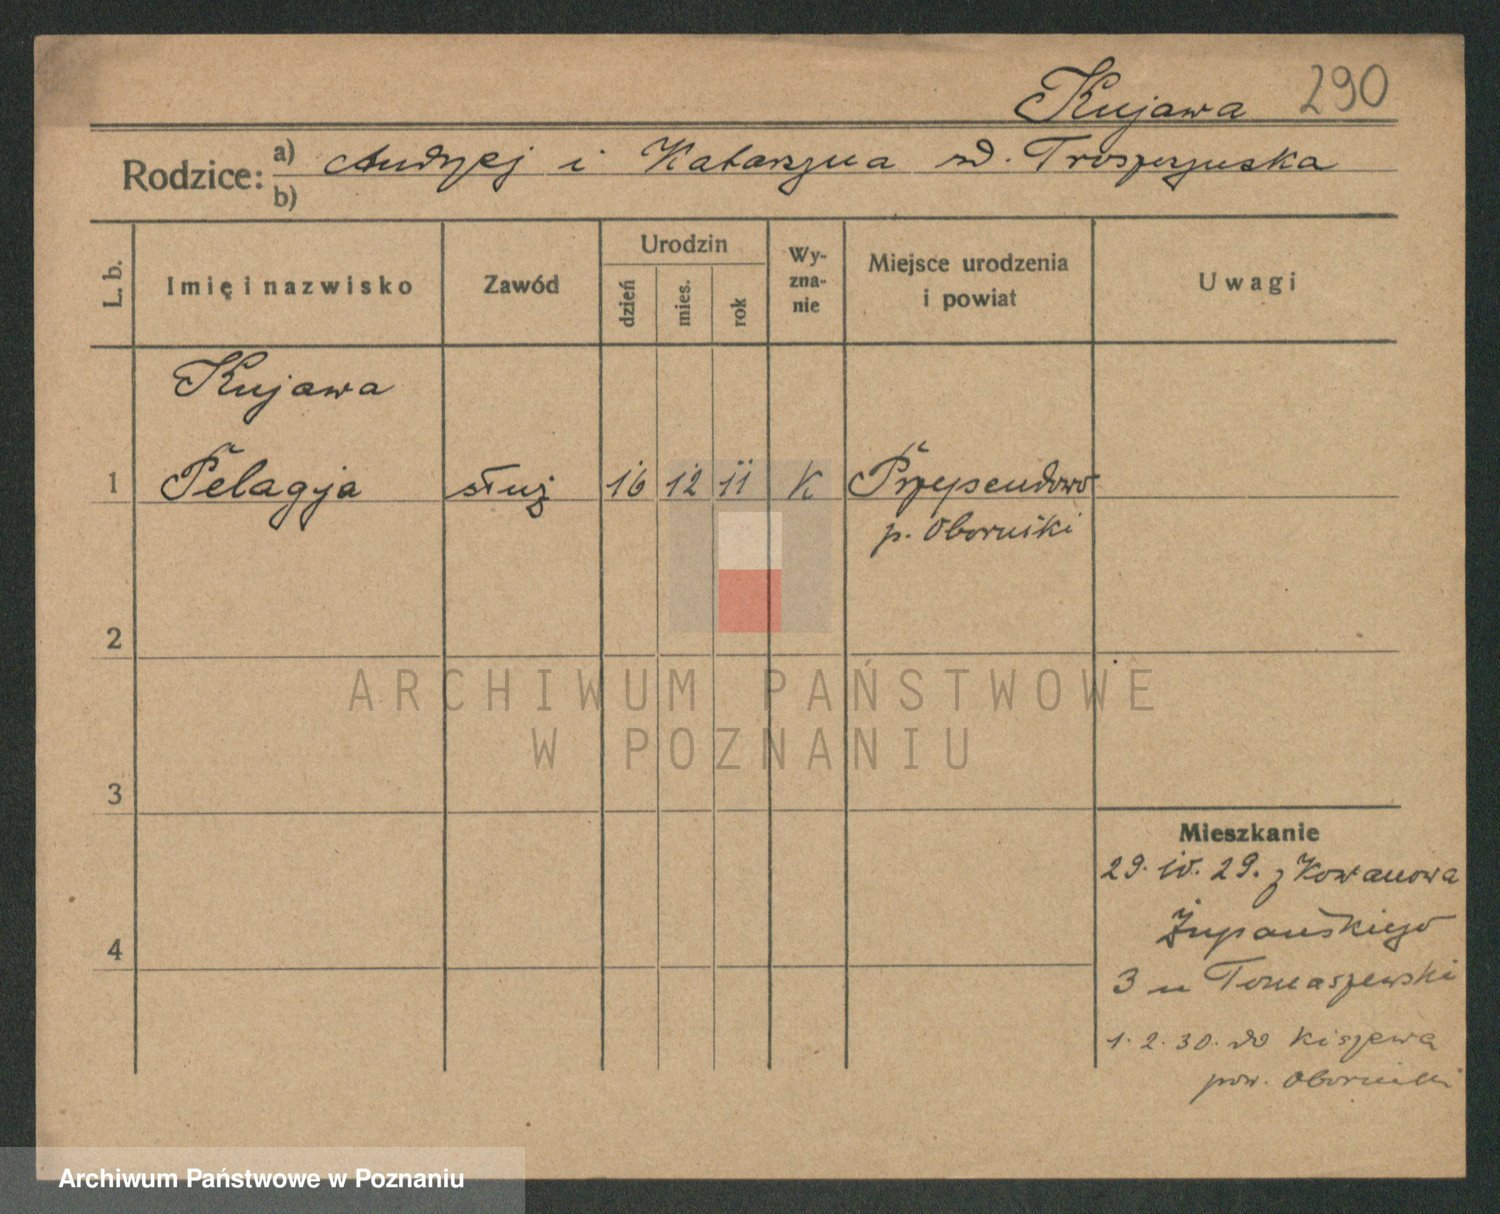 Kujawa 290
Rodzice: a) Andrzej i Katarzyna zd. Troszczyńska
b)
L. b. Imię i nazwisko Zawód Urodzin dzień mies. rok Wyzna-nie Miejsce urodzenia i powiat Uwagi
Kujawa
1 Pelagja służ 16 12 11 K Przependowo
p. Oborniki
2
ARCHIWUM PAŃSTWOWE
W POZNANIU
3
Mieszkanie
29. IV. 29. z Kowanowa
Żupańskiego
4
3 u Tomaszewski
1. 2. 30. do Kiszewa
pow. Oborniki
Archiwum Państwowe w Poznaniu